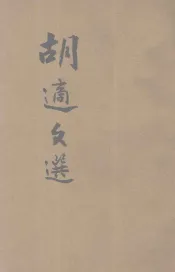 胡適文選